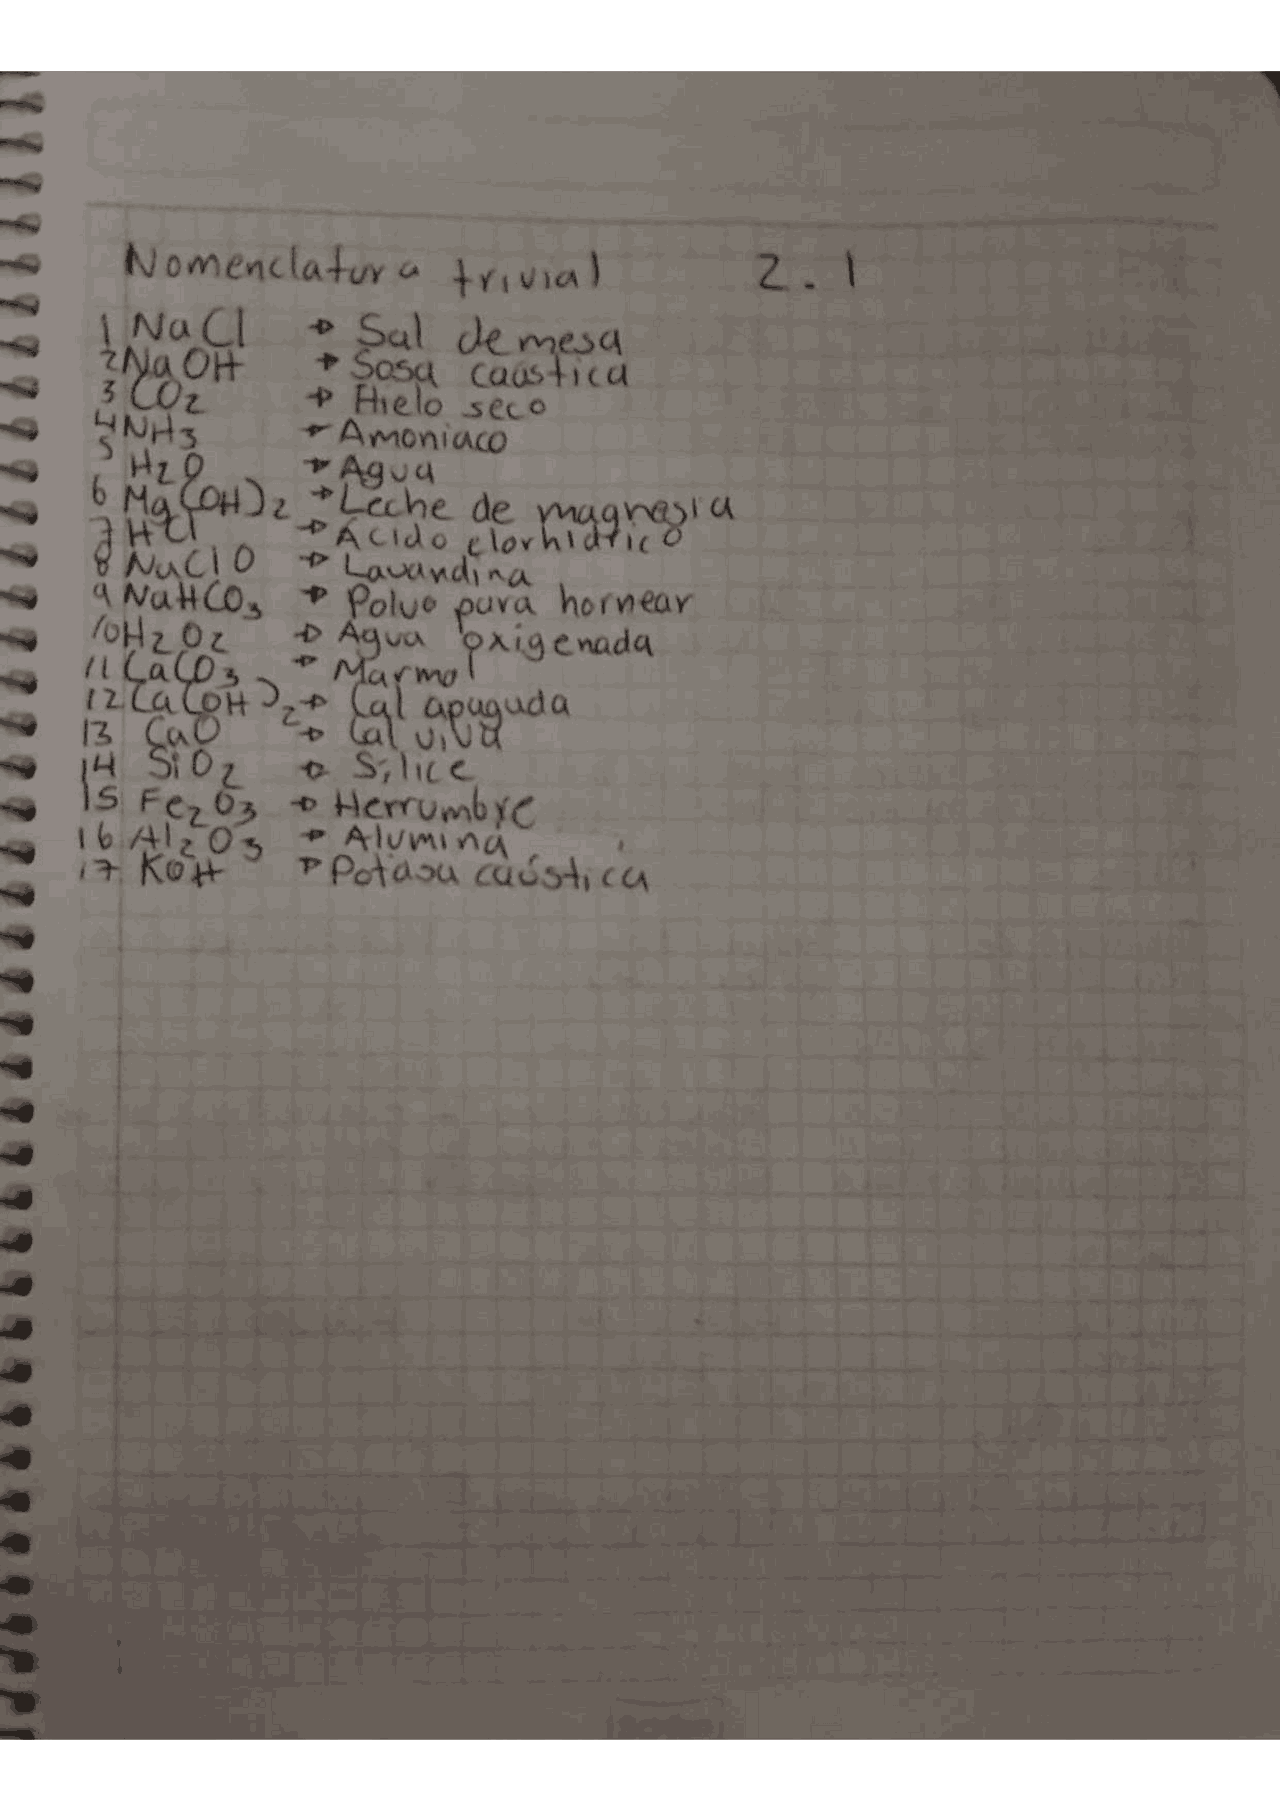 Nomenclatura trivial 2.1
1 NaCl → Sal de mesa
2 NaOH → Sosa caústica
3 CO2 → Hielo seco
4 NH3 → Amoniaco
5 H2O → Agua
6 Mg(OH)2 → Leche de magnesia
7 HCl → Acido clorhidrico
8 NaClO → Lavandina
9 NaHCO3 → Polvo para hornear
10 H2O2 → Agua oxigenada
11 CaCO3 → Marmol
12 Ca(OH)2 → Cal apagada
13 CaO → Cal viva
14 SiO2 → Silice
15 Fe2O3 → Herrumbre
16 Al2O3 → Alumina
17 KOH → Potasa caústica